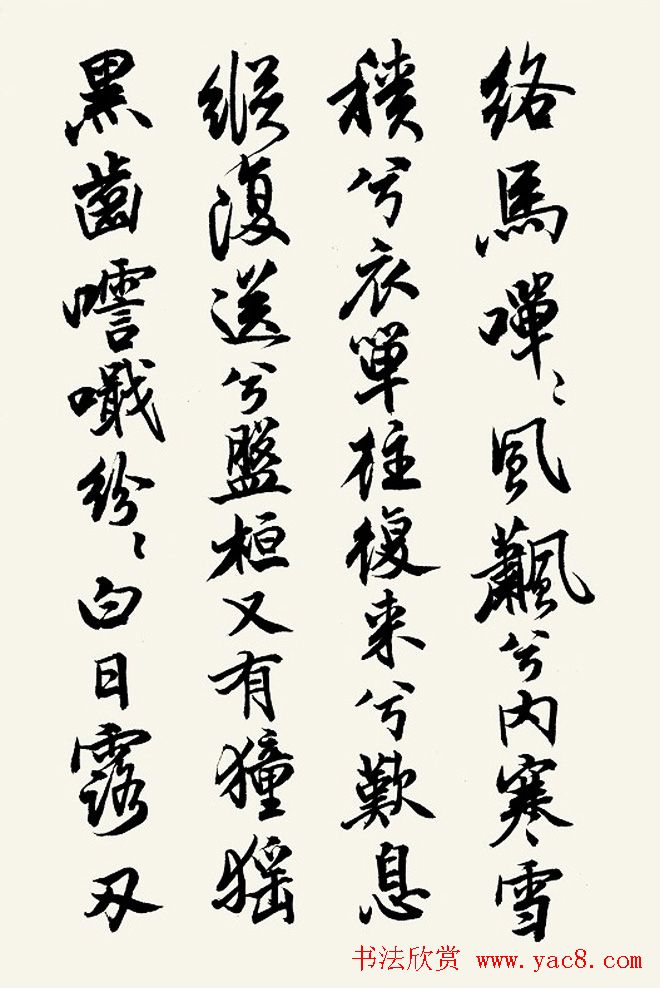 络馬嘽〻風飄兮内寒雪
積兮衣單往復来兮歎息
縱復送兮盤桓又有獞猺
黑齒嚖嘰紛〻白日露刃
书法欣赏 www.yac8.com